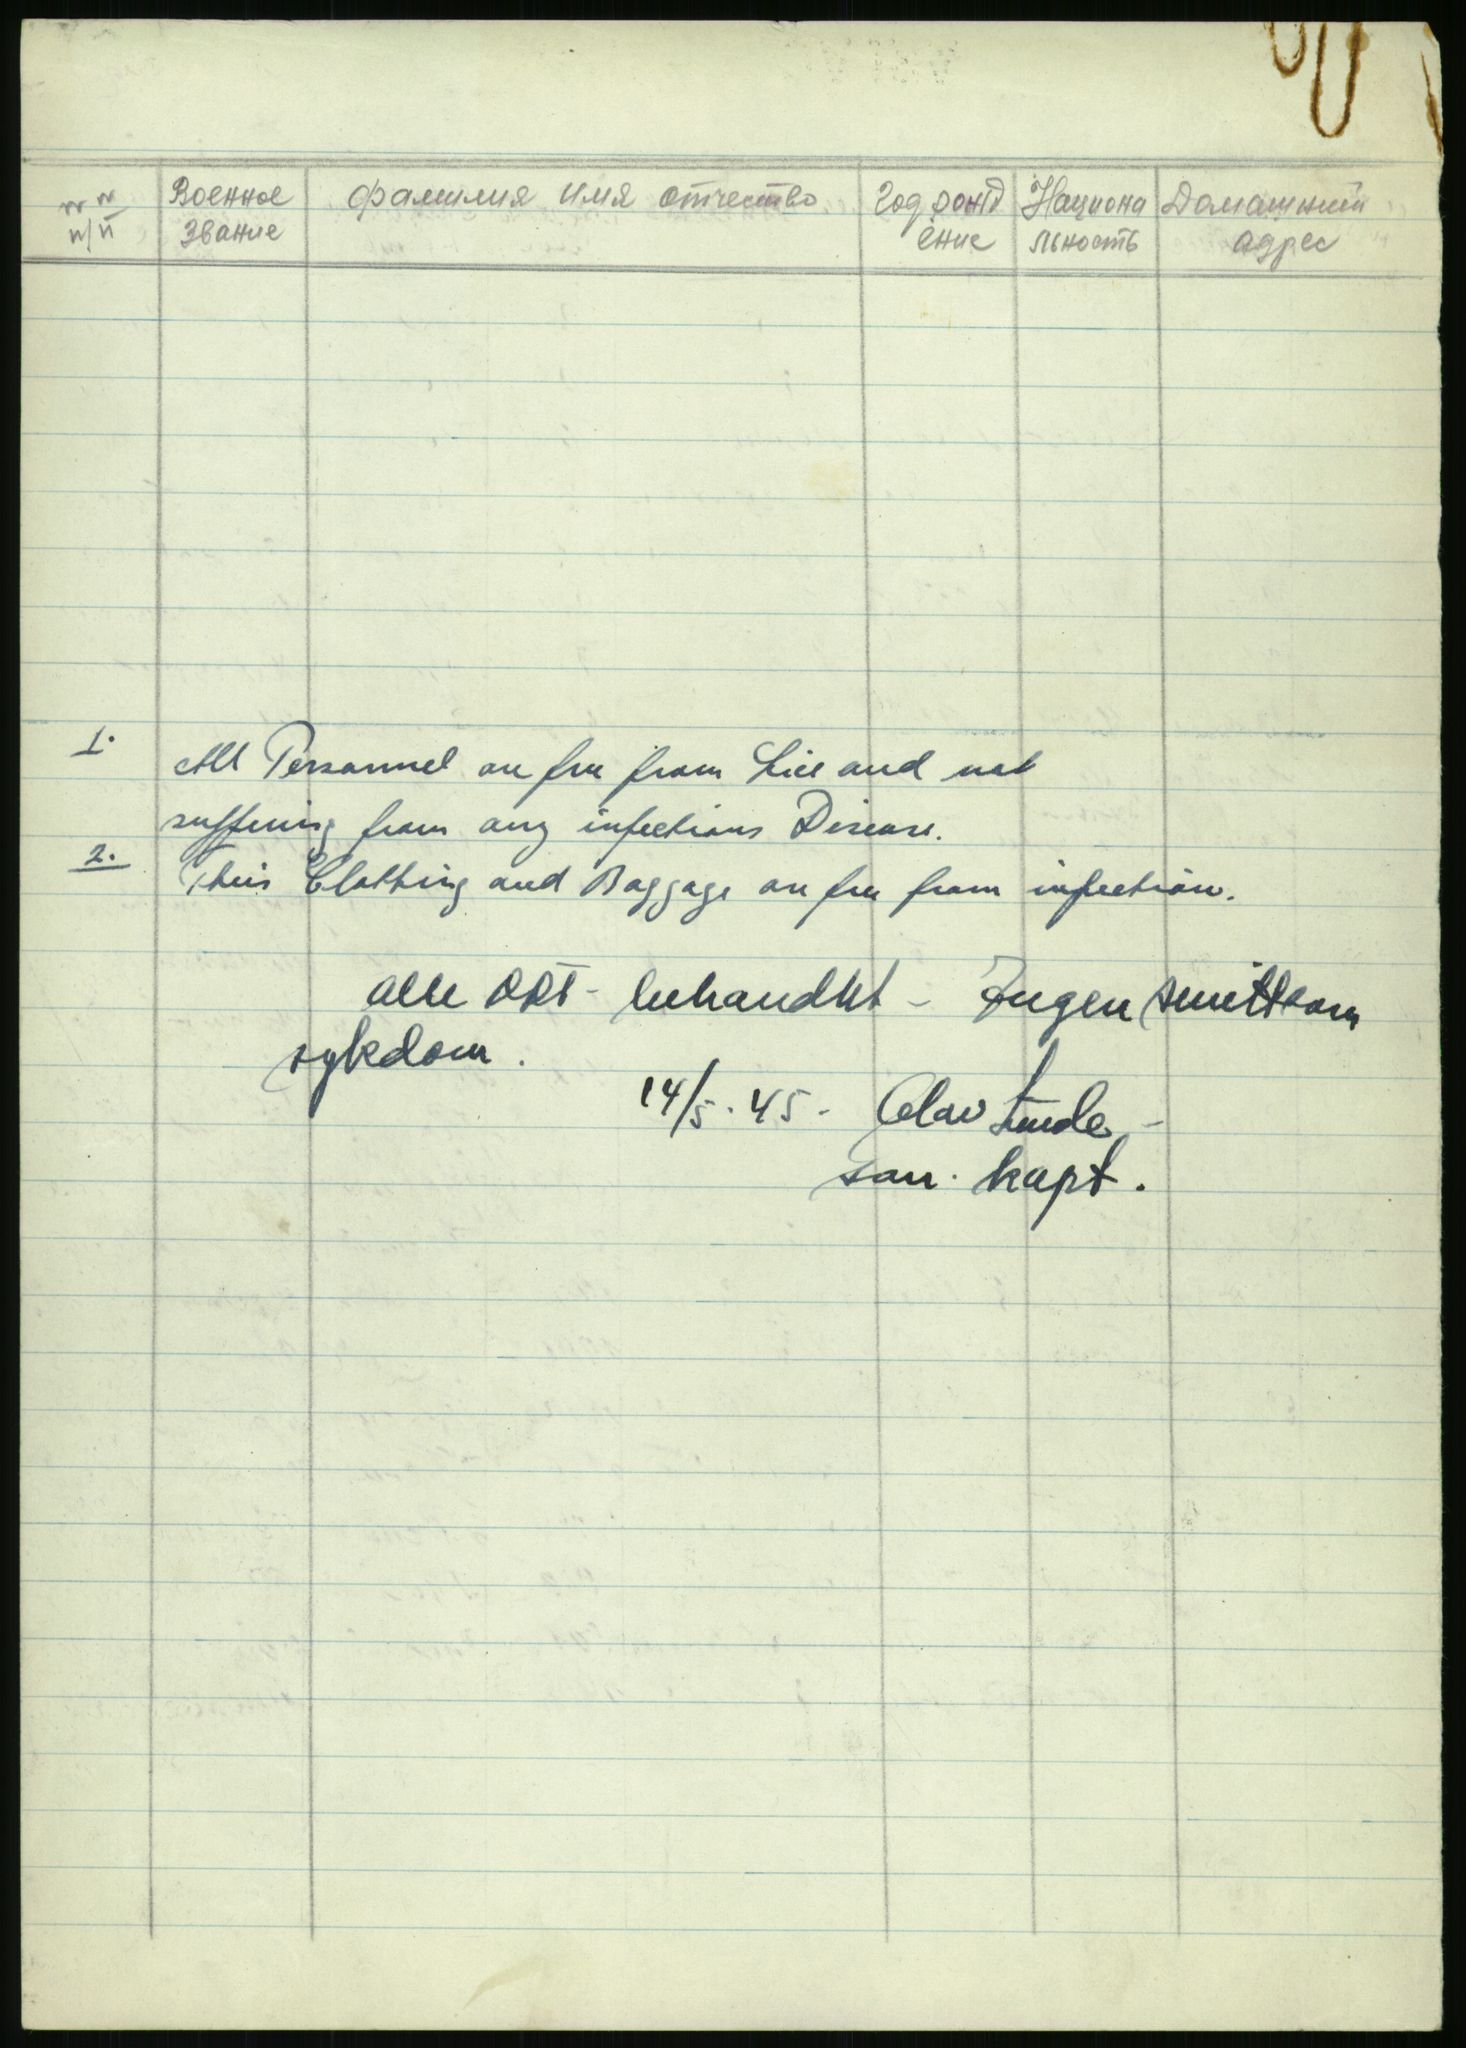 № № Военное Фамилия Имя Отчество Год рожд Национа Домашний
п/п Звание ение льность адрес
1. All Personnel are free from Lice and not
suffering from any infectious Disease.
2. Their Clothing and Baggage are free from infection.
alle DDT - behandlet - Ingen smittsom
sykdom.
14/5.45 - Olav Lunde -
san. kapt.